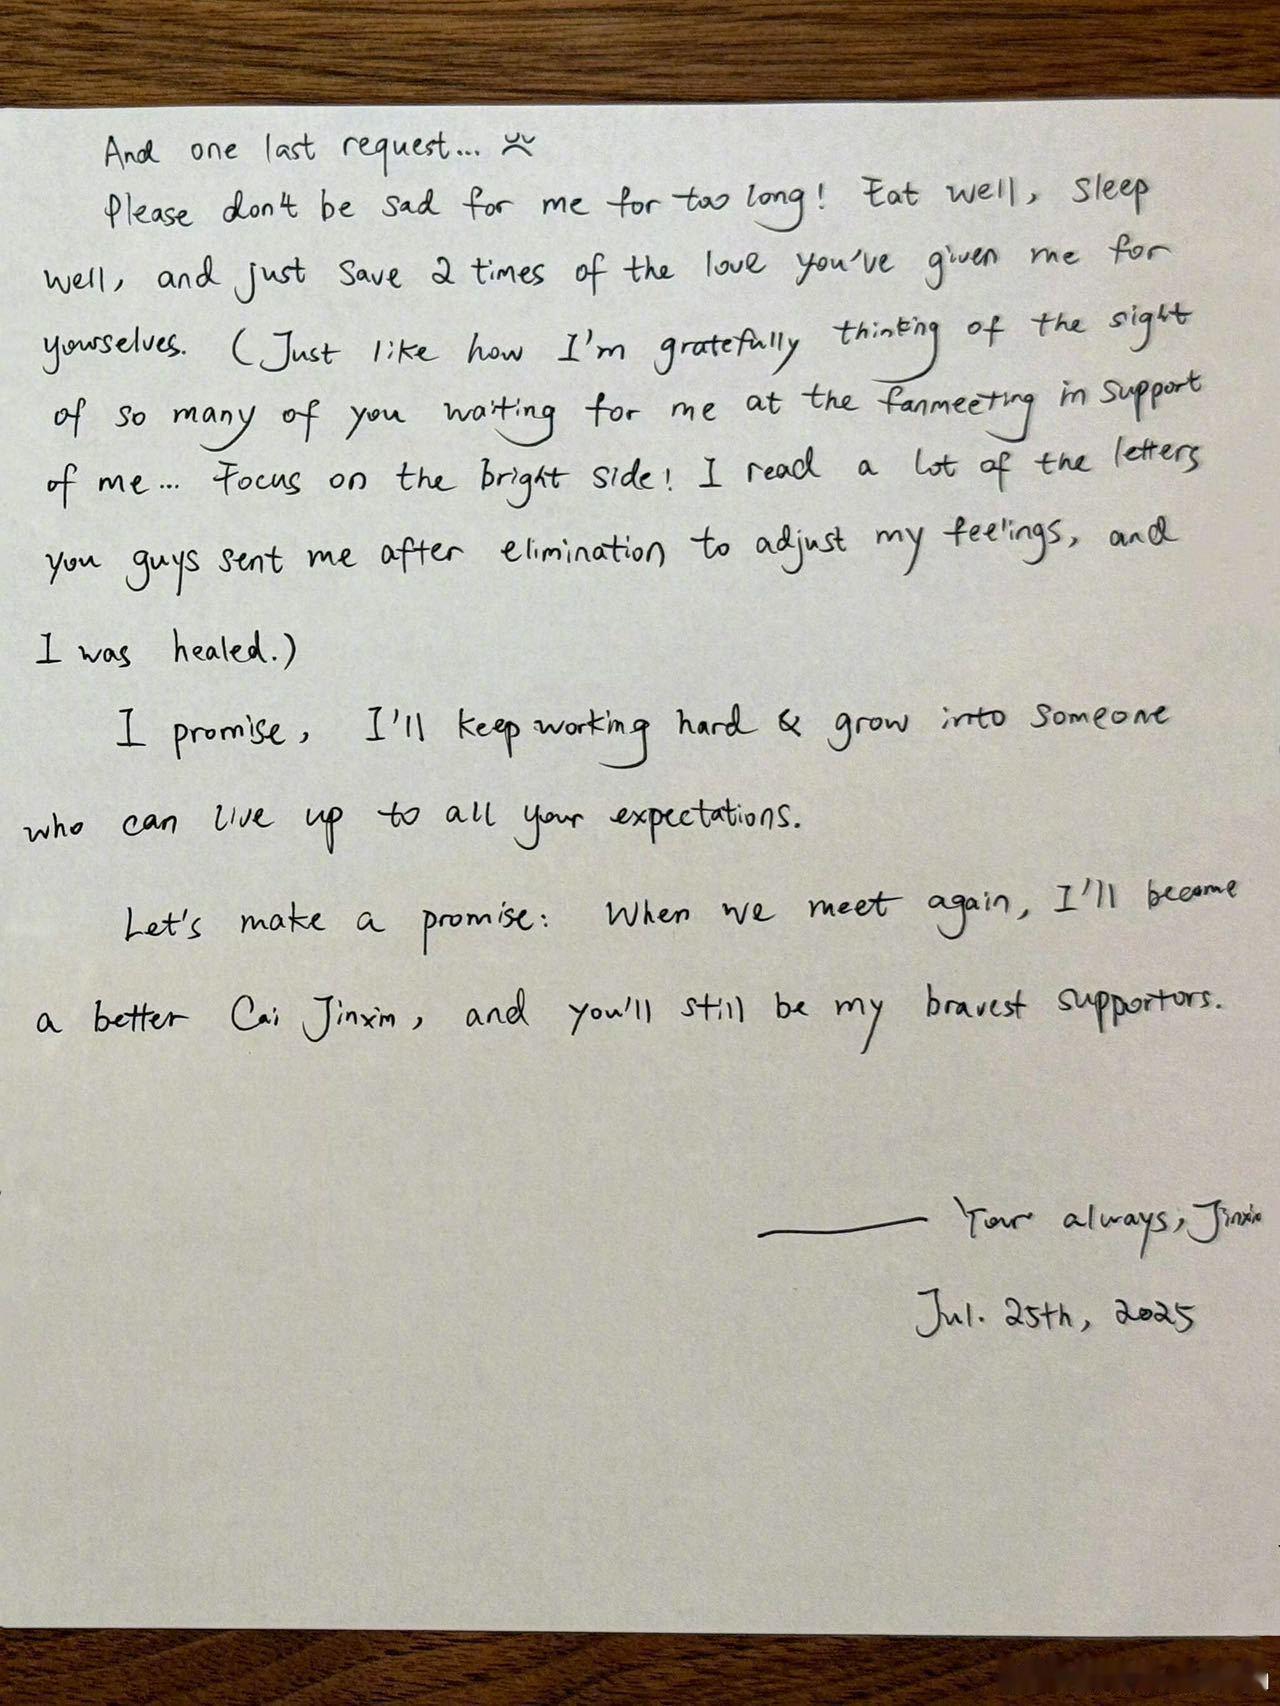 And one last request...
Please don't be sad for me for too long! Eat well, sleep
well, and just save 2 times of the love you've given me for
yourselves. (Just like how I'm gratefully thinking of the sight
of so many of you waiting for me at the fanmeeting in support
of me... Focus on the bright side! I read a lot of the letters
you guys sent me after elimination to adjust my feelings, and
I was healed.)
I promise, I'll keep working hard & grow into someone
who can live up to all your expectations.
Let's make a promise: When we meet again, I'll become
a better Cai Jinxin, and you'll still be my bravest supportors.
—— Your always, Jinxin
Jul. 25th, 2025